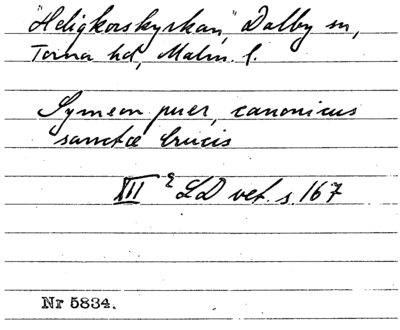 "Heligkorskyrkan," Dalby sn,
Torna hd, Malm. l.
Symeon puer, canonicus
sanctæ Crucis
XII LD vet. s. 167
Nr 5834.